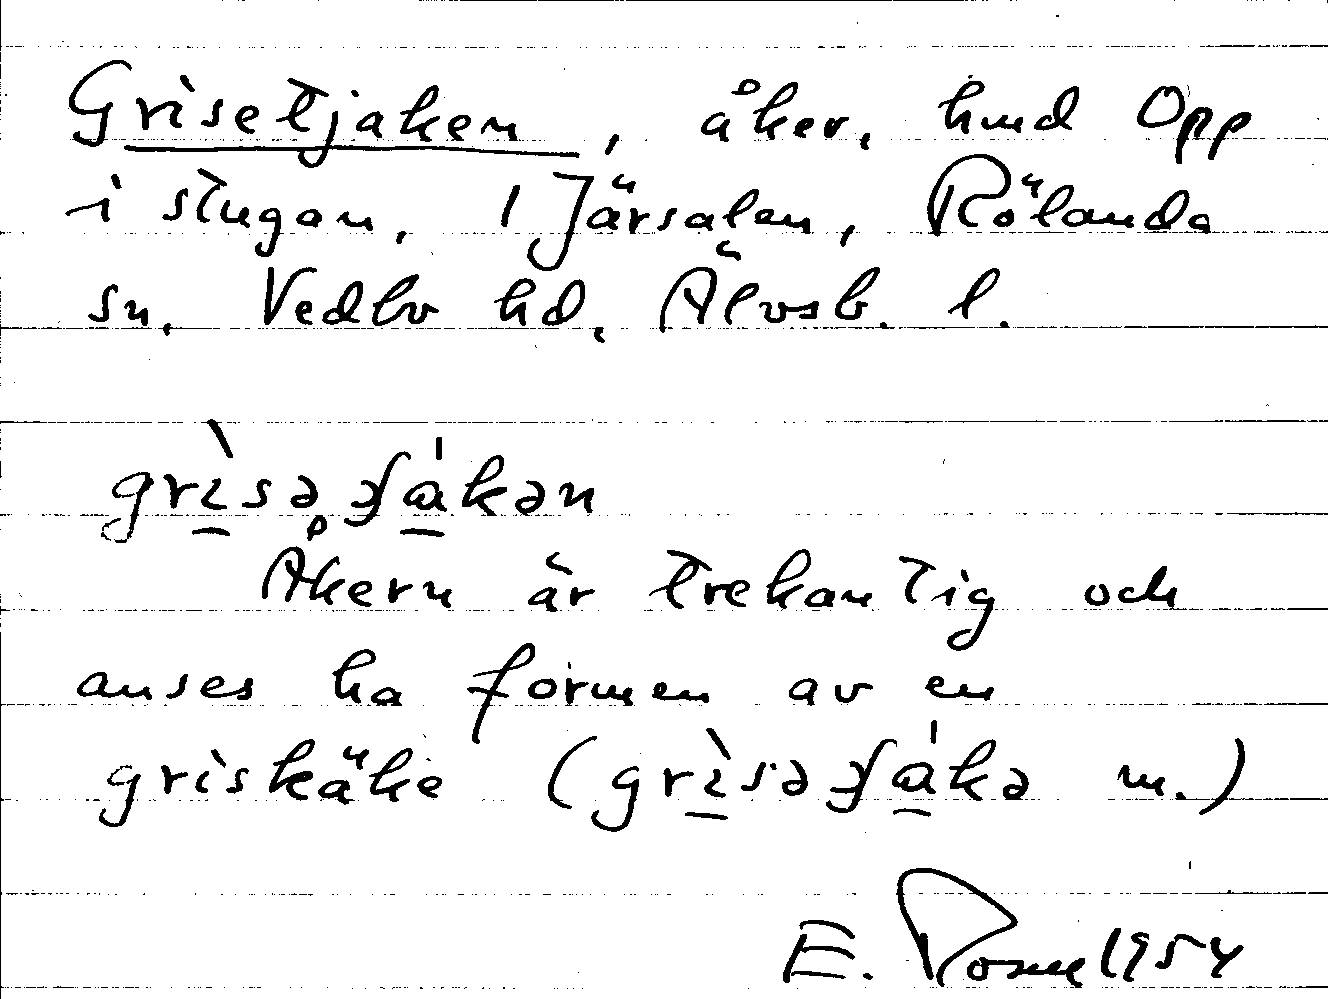 Grisetjaken, åker, hmd Opp
i stugan, 1 Järsalen, Rölanda
sn. Vedbo hd. Älvsb. l.
grìsəʃákən
Åkern är trekantig och
anses ha formen av en
griskäke (grìsəʃákə m.)
E. 1954